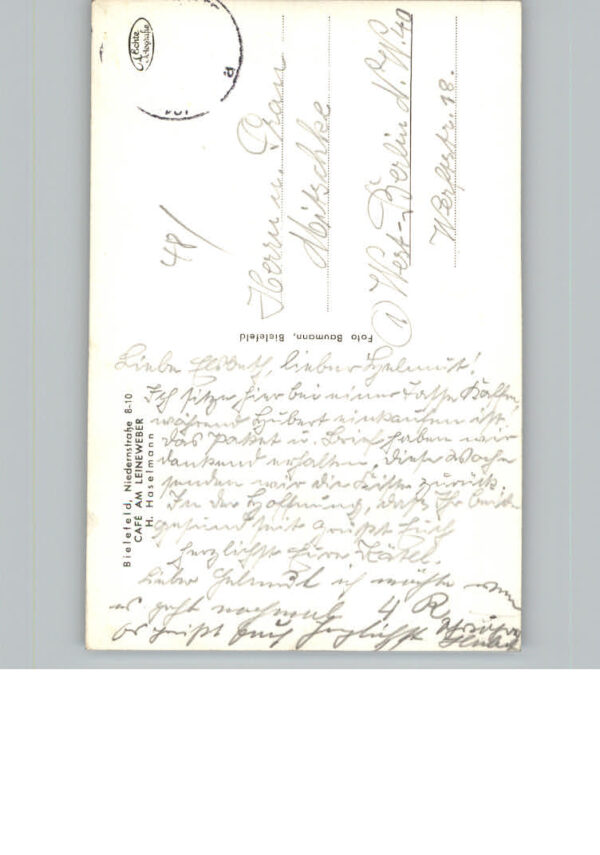 Echte
Fotografie
48/
Herrn u. Frau
Mitschke
(1) West-Berlin N.W. 40
Werftstr. 18.
Foto Baumann, Bielefeld
Bielefeld, Niedernstraße 8-10
CAFÉ AM LEINEWEBER
H. Haselmann
Liebe Elsbeth, lieber Helmut!
Ich sitze hier bei einer Tasse Kaffee,
während Hubert einkaufen ist.
Das Paket u. Brief haben wir
dankend erhalten, diese Woche
senden wir die Kiste zurück.
In der Hoffnung, daß Ihr beide
gesund seit grüßt Euch
herzlichst Eure Kätel.
Lieber Helmut ich möchte wenn
es geht nochmal 4 R
es grüßt Euch herzlichst